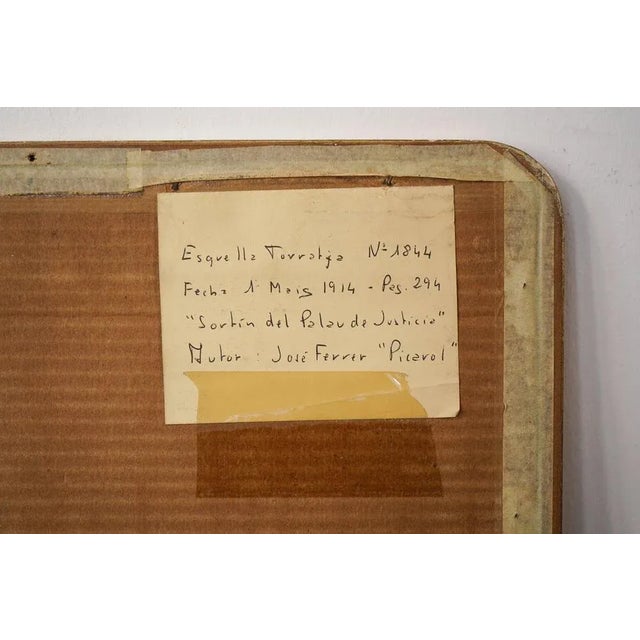 Esquella Torratja Nº 1844
Fecha 1 Maig 1914 - Pag. 294
"Sortin del Palau de Justicia"
Autor : José Ferrer "Picarol"